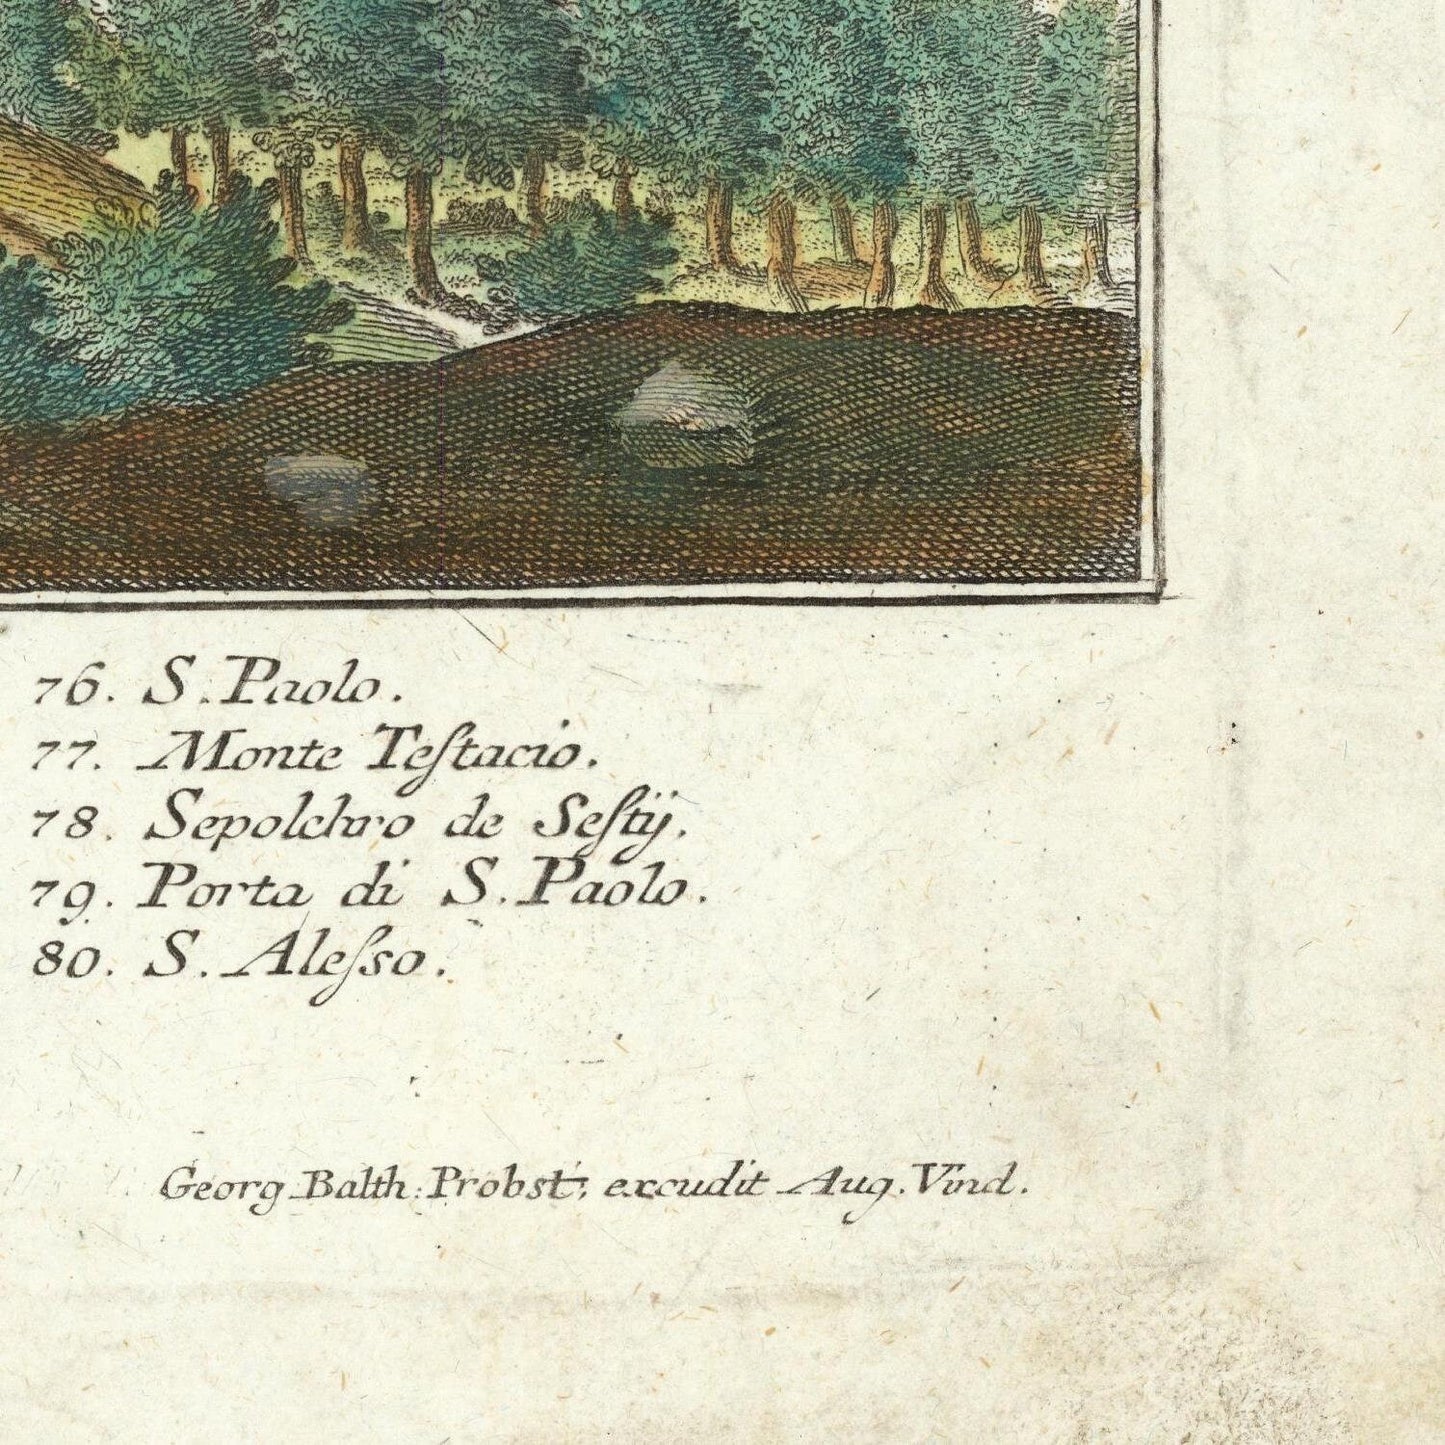 76. S. Paolo.
77. Monte Teſtacio.
78. Sepolchro de Seſtÿ.
79. Porta di S. Paolo.
80. S. Aleſso.
Georg Balth: Probst, excudit Aug. Vind.